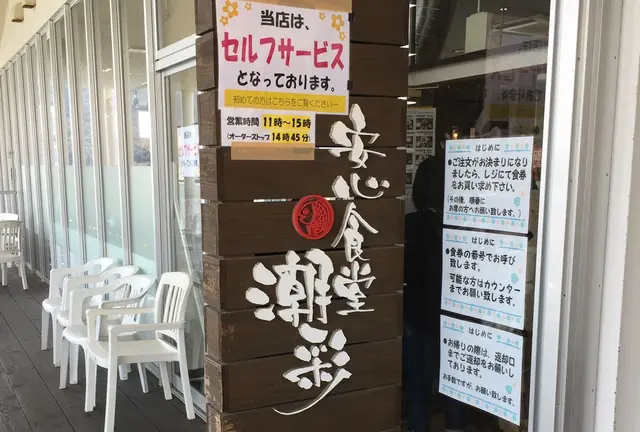 当店は、
セルフサービス
となっております。
初めての方はこちらをご覧ください→
営業時間 11時～15時
(オーダーストップ 14時45分)
安心食堂
潮彩
はじめに
●ご注文がお決まりになり
ましたら、レジにて食券
をお買い求め下さい。
(その後、順番に
お席の方へお願い致します。)
はじめに
●食券の番号でお呼び
致します。
可能な方はカウンター
までお願い致します。
はじめに
●お帰りの際は、返却口
までご返却をお願いし
ております。
お手数ですが、お願い致します。